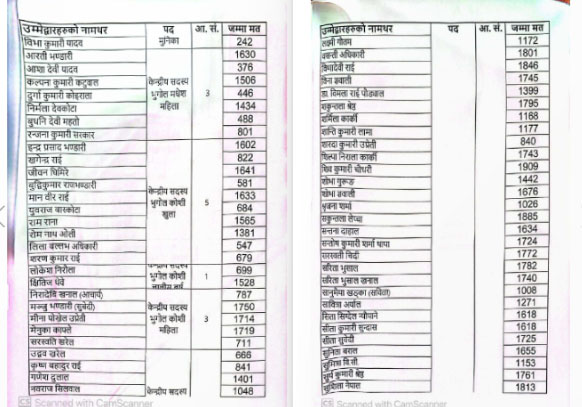 उम्मेद्वारहरुको नामथर पद आ. सं. जम्मा मत
विभा कुमारी यादव मुनिका 242
आरती भण्डारी 1630
आशा देवी यादव 376
कल्पना कुमारी कटुवाल केन्द्रीय सदस्य 1506
दुर्गा कुमारी कोइराला भुगोल मधेश 3 446
निर्मला देवकोटा महिला 1434
बुधनि देवी महतो 488
रन्जना कुमारी सरकार 801
इन्द्र प्रसाद भण्डारी 1602
खगेन्द्र राई 822
जीवन घिमिरे 1641
बुद्धिकुमार रायभण्डारी 581
मान वीर राई केन्द्रीय सदस्य 1633
युवराज बास्कोटा भुगोल कोशी 5 684
राम राना खुला 1565
रोम नाथ ओली 1381
लिला बल्लभ अधिकारी 547
शरण कुमार राई 679
लोकेश निरौला 699
क्षितिज थेबे भुगोल कोशी 1 1528
निरादेवि खनाल (आचार्य) 787
मञ्जु भण्डारी (सुबेदी) केन्द्रीय सदस्य 1750
मीना पोखेल उप्रेती भुगोल कोशी 3 1714
मेनुका काफ्ले महिला 1719
सरस्वति खरेल 711
उद्धव खरेल 666
कृष्ण बहादुर राई 841
गणेश दुलाल 1401
नवराज सिलवाल केन्द्रीय सदस्य 1048
CS Scanned with CamScanner
उम्मेद्वारहरुको नामथर पद आ. सं. जम्मा मत
लक्ष्मी गौतम 1172
अधिकारी 1801
देवी राई 1846
1745
डा. विमला राई पौडयाल 1399
शकुन्तला श्रेष्ठ 1795
शर्मिला कार्की 1168
शान्ति कुमारी लामा 1177
शारदा कुमारी उप्रेती 840
शिल्पा निराला कार्की 1743
शिव कुमारी चौधरी 1909
शोभा गुरूङ 1442
शोभा ज्ञवाली 1676
शर्मा 1026
सकुन्तला लेप्चा 1885
1634
सन्तोष कुमारी शर्मा थापा 1724
सरस्वती 1772
सरिता भुसाल 1782
सरिता भुसाल खनाल 1740
सानुमैया खड्का (सविता) 1008
सावित्रा अर्याल 1271
सिता सिग्देल न्यौपाने 1618
सीता कुमारी सुन्दास 1618
सीता सुवेदी 1725
सुनिता बराल 1655
सुमित्रा वि.सी 1153
कुमारी श्रेष्ठ 1761
सुशिला नेपाल 1813
CS Scanned with CamScanner